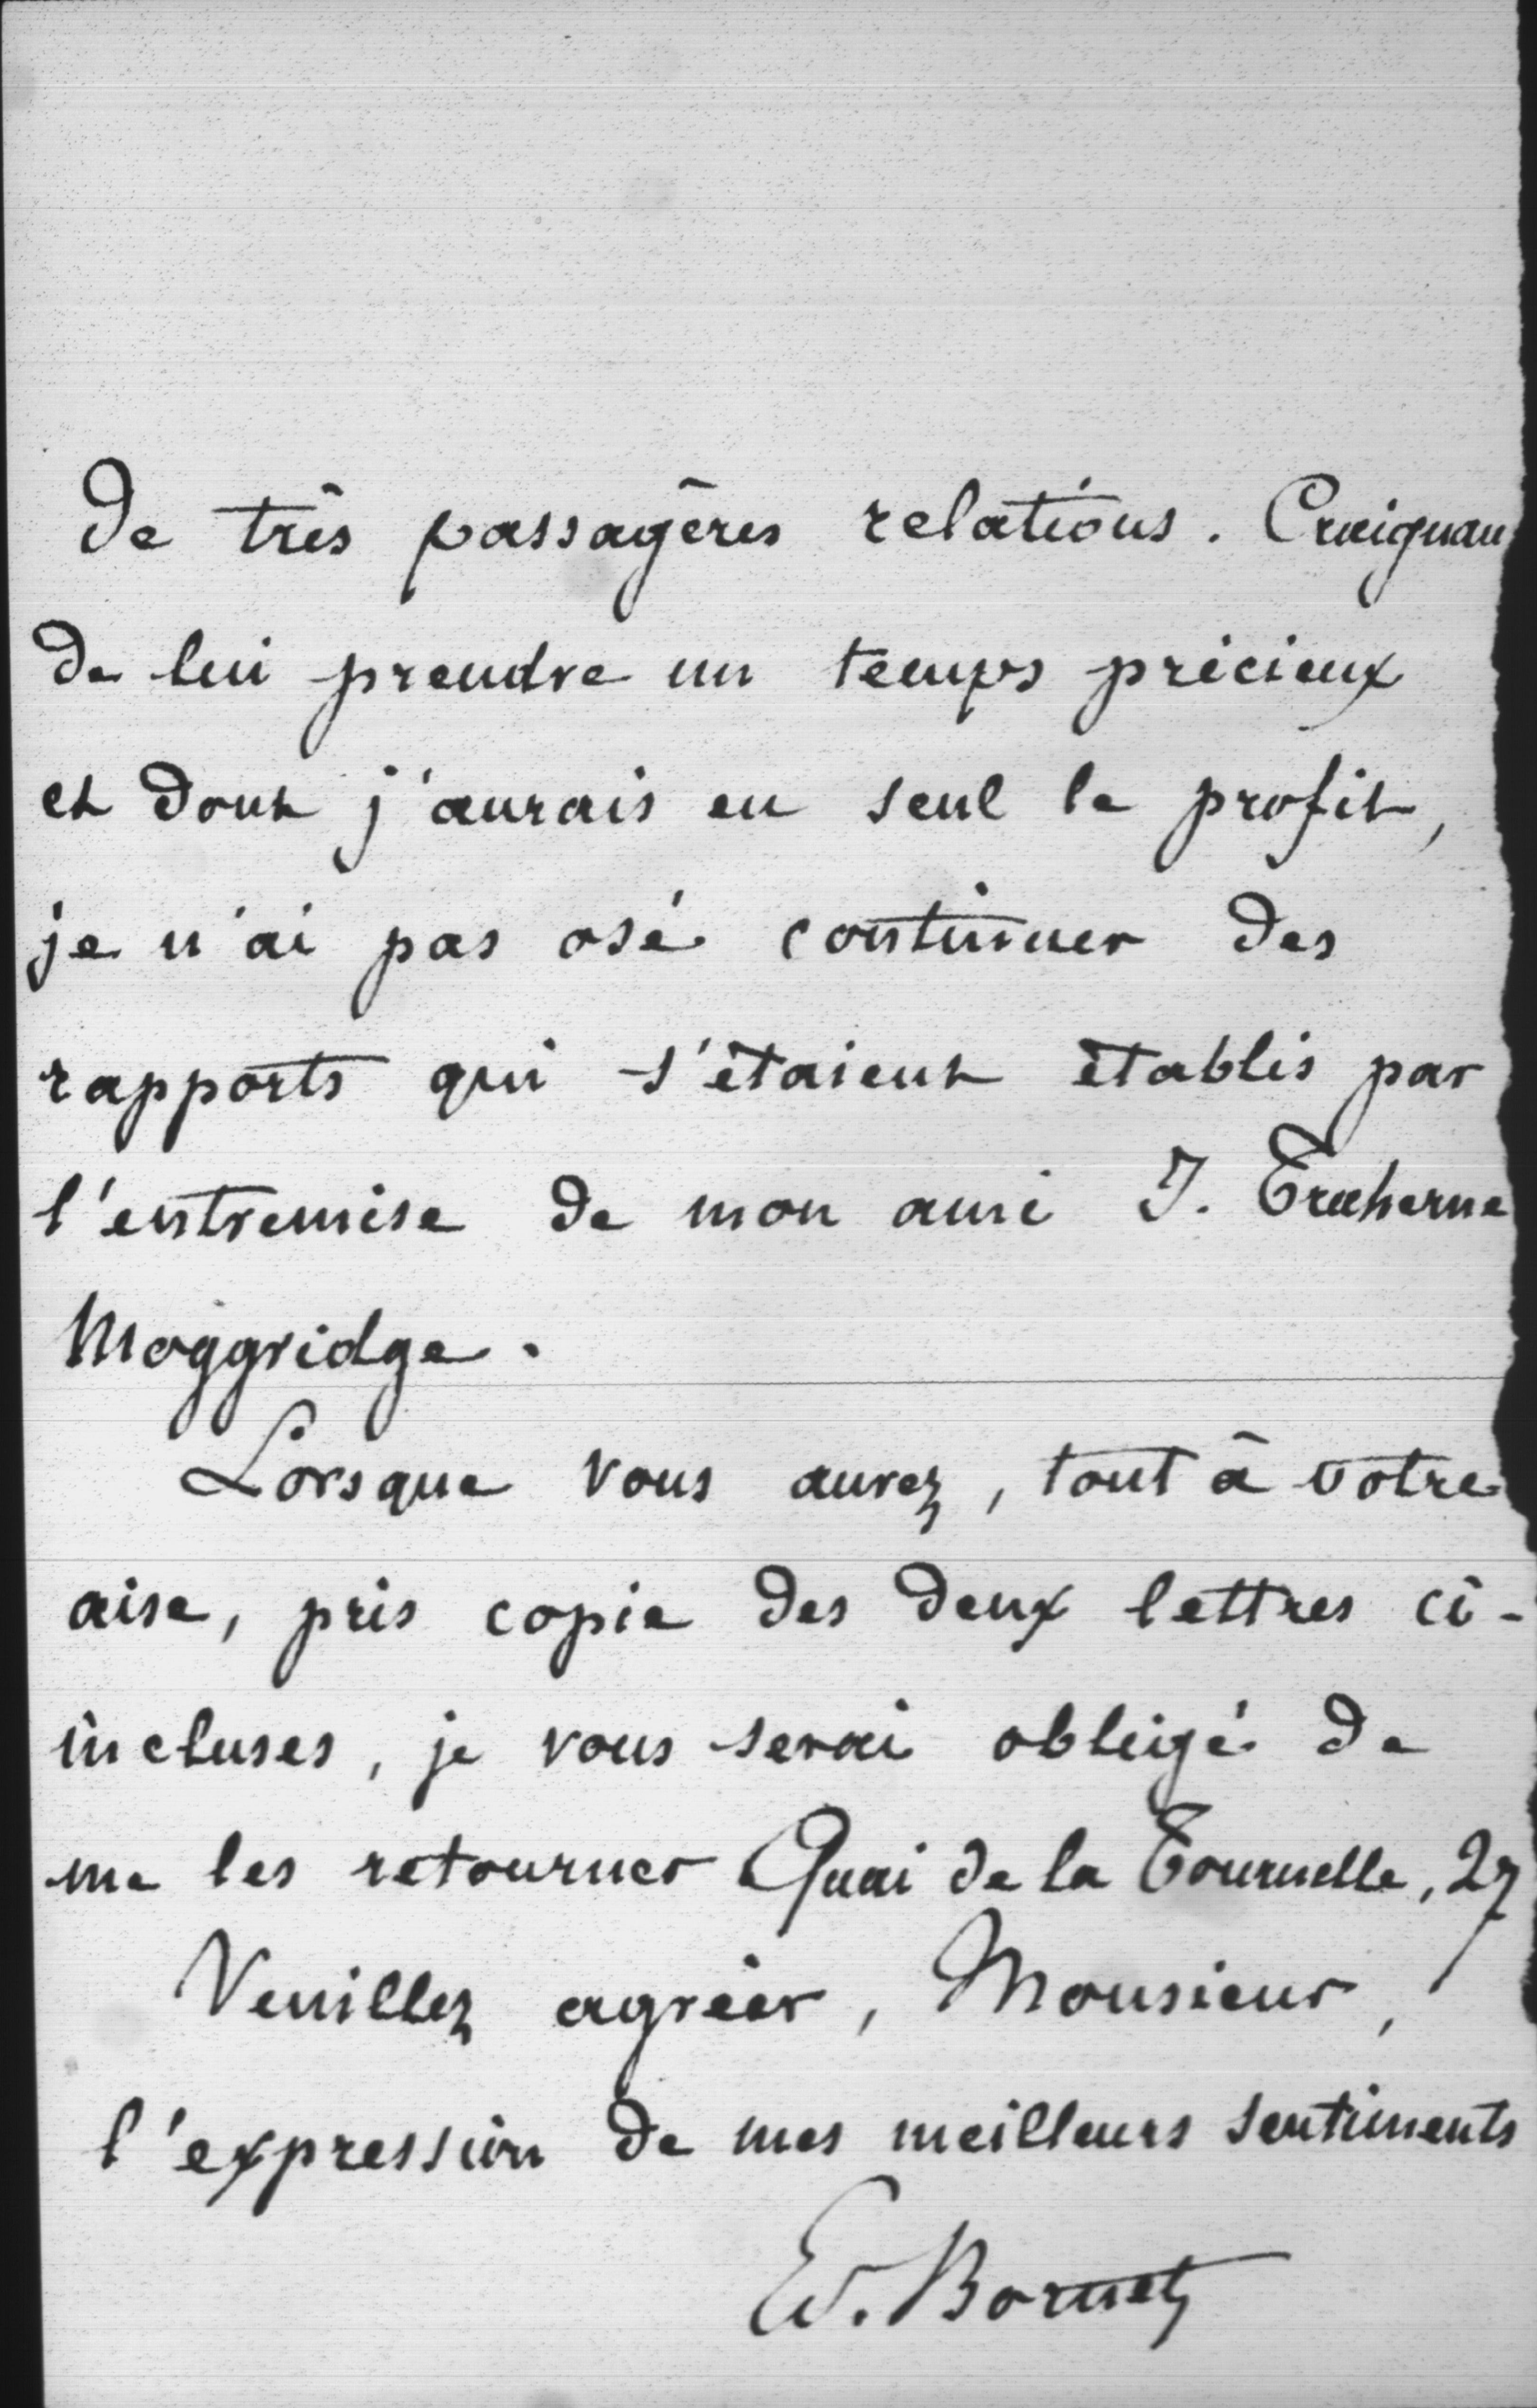 de très passagères relations. Craignan
de lui prendre un temps précieux
et dont j'aurais eu seul le profit,
je n'ai pas osé continuer des
rapports qui s'étaient établis par
l'entremise de mon ami J. Traherne
Moggridge.
Lorsque vous aurez, tout à votre
aise, pris copie des deux lettres ci-
incluses, je vous serai obligé de
me les retourner Quai de la Tournelle, 27
Veuillez agréer, Monsieur,
l'expression de mes meilleurs sentiments
Ed. Bornet